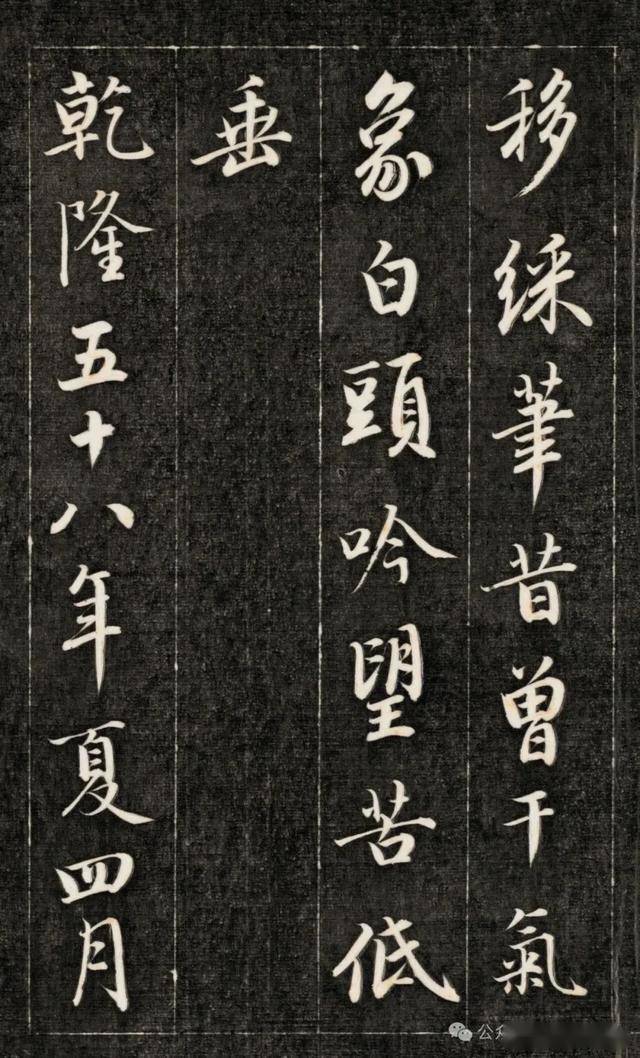 移綵筆昔曾干氣
象白頭吟望苦低
垂
乾隆五十八年夏四月
公众